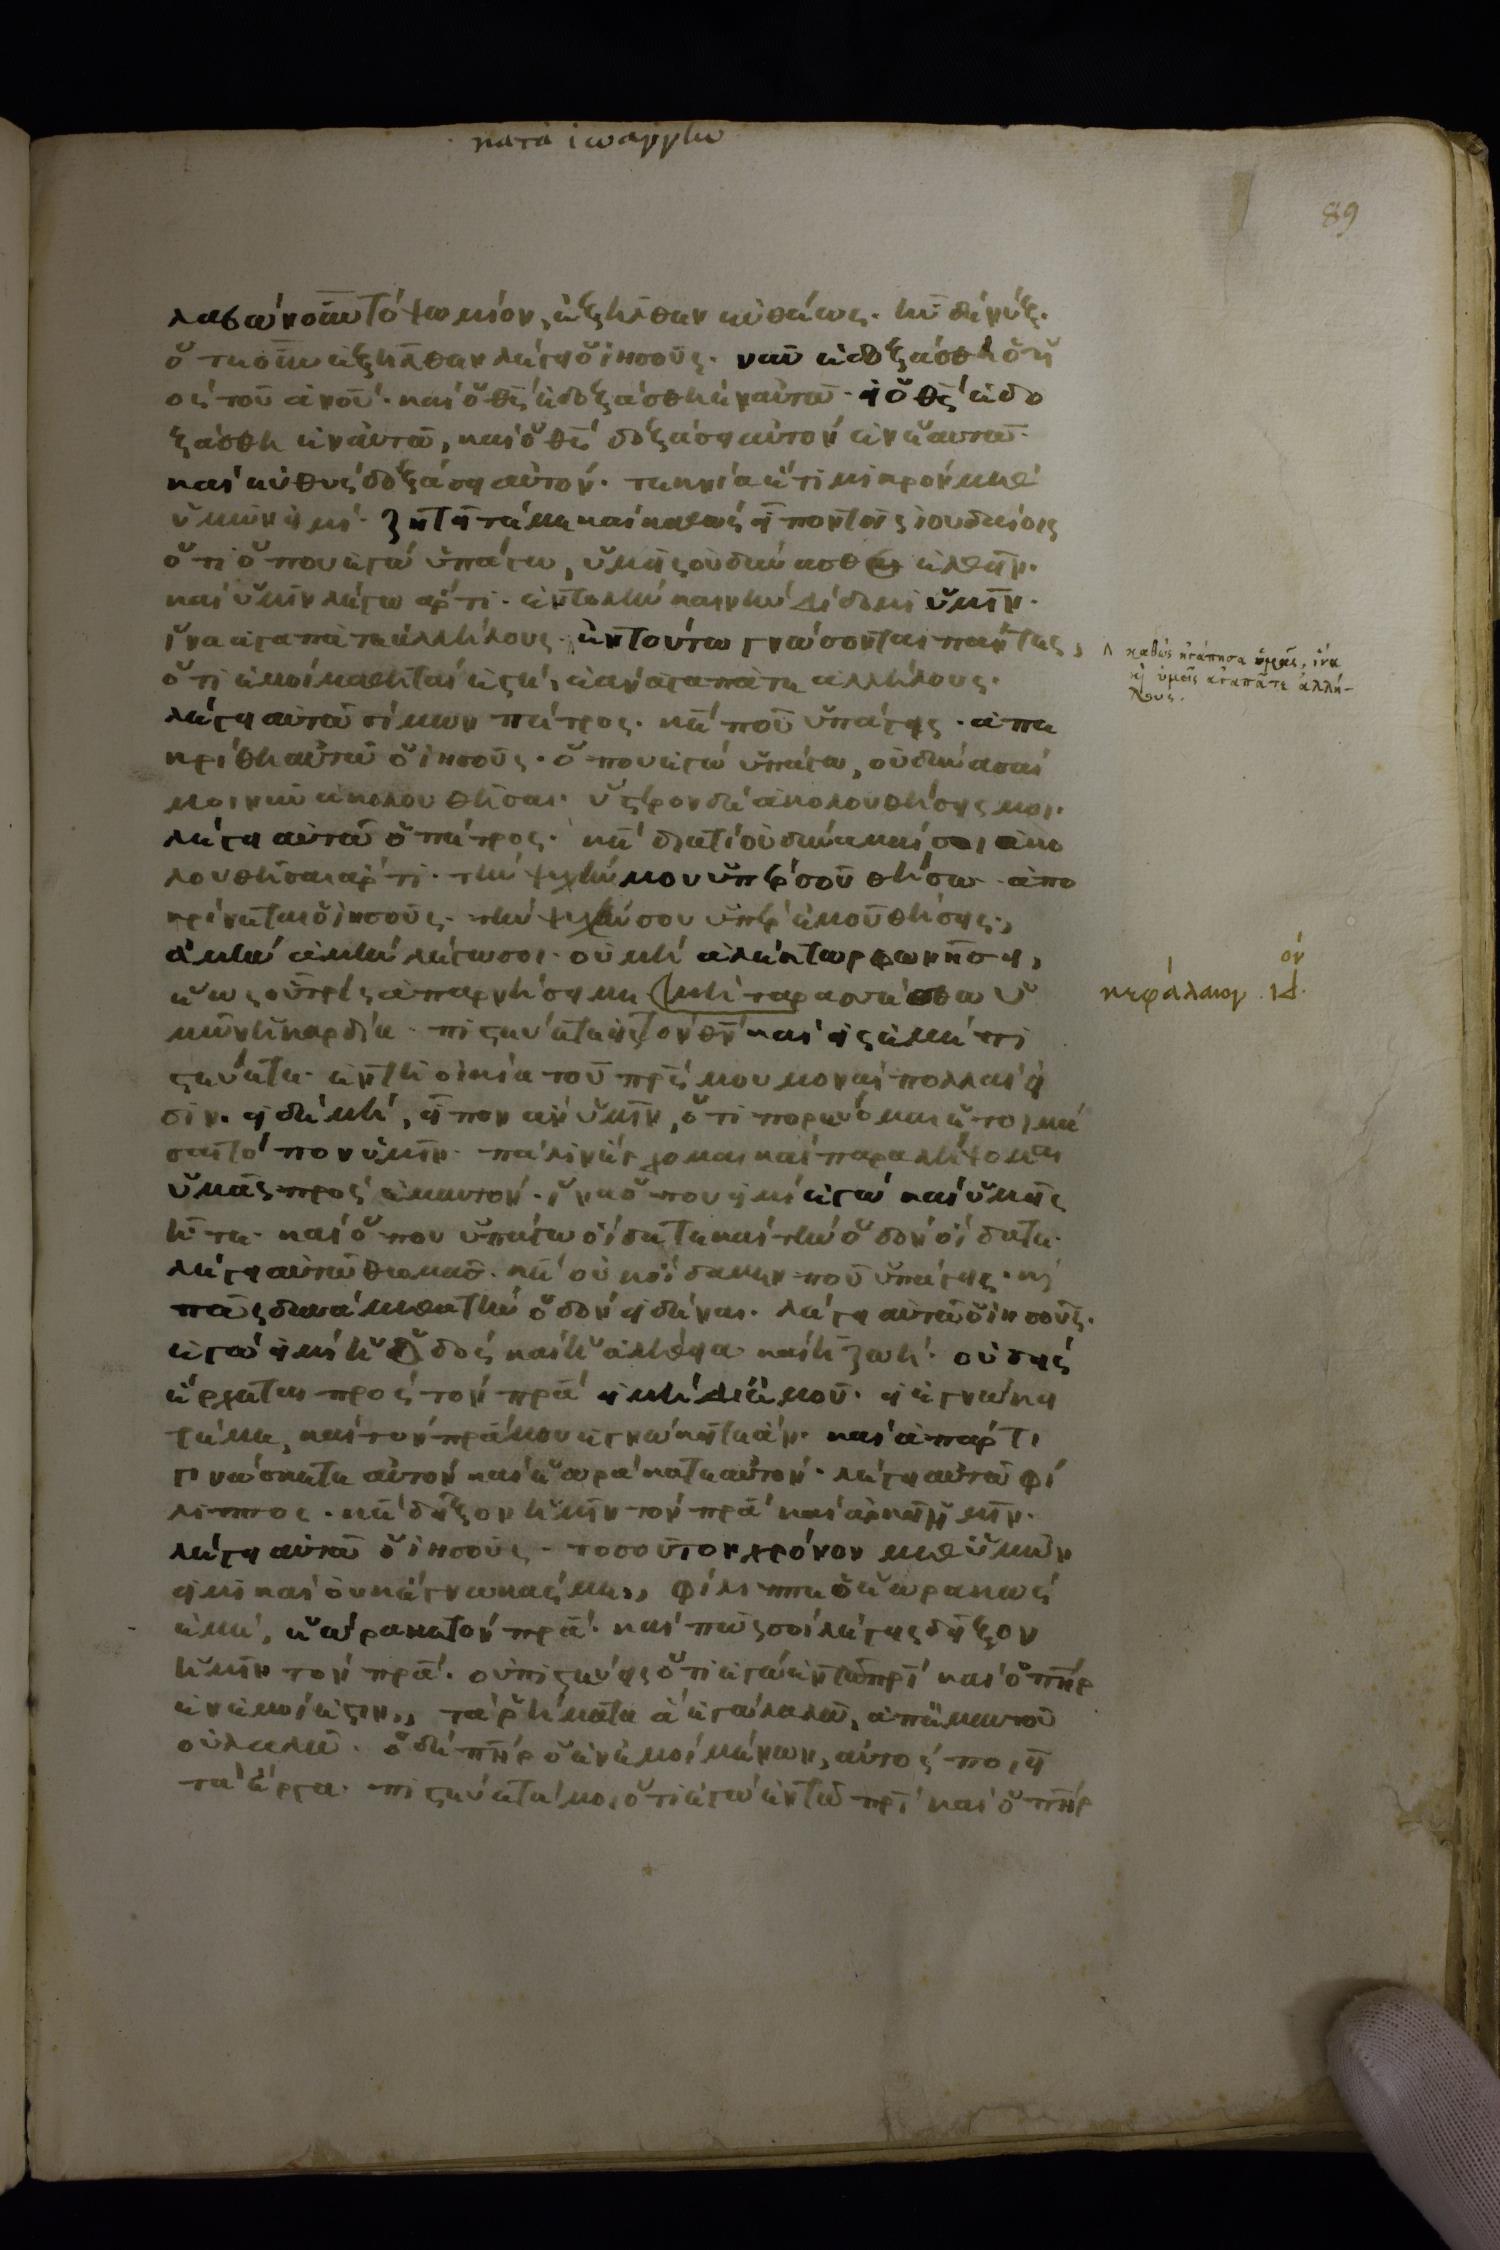 κατὰ ἰωάννην
89
λαβὼν οὖν τὸ ψωμίον, ἐξῆλθεν εὐθέως. ἦν δὲ νύξ.
ὅτε οὖν ἐξῆλθεν λέγει ὁ ἰησοῦς. νῦν ἐδοξάσθη ὁ υἱ
ὸς τοῦ ἀνου. καὶ ὁ θς ἐδοξάσθη ἐν αὐτῶ. εἰ ὁ θς ἐδο
ξάσθη ἐν αὐτῶ, καὶ ὁ θς δοξάσει αὐτὸν ἐν ἑαυτῶ.
καὶ εὐθὺς δοξάσει αὐτόν. τεκνία ἔτι μικρὸν μεθ
ὑμῶν εἰμί. ζητεῖτέ με καὶ καθὼς εἶπον τοῖς ἰουδαίοις
ὅτι ὅπου ἐγὼ ὑπάγω, ὑμεῖς οὐ δύνασθε ἐλθεῖν.
καὶ ὑμῖν λέγω ἄρτι. ἐντολὴν καινὴν δίδωμι ὑμῖν.
ἵνα ἀγαπᾶτε ἀλλήλους. ἐν τούτω γνώσονται πάντες,
ὅτι ἐμοὶ μαθηταί ἐστε, ἐὰν ἀγαπᾶτε ἀλλήλους.
λέγει αὐτῶ σίμων πέτρος. κε ποῦ ὑπάγεις. ἀπε
κρίθη αὐτῶ ὁ ἰησοῦς. ὅπου ἐγὼ ὑπάγω, οὐ δύνασαί
μοι νῦν ἀκολουθῆσαι. ὕστερον δὲ ἀκολουθήσεις μοι.
λέγει αὐτῶ ὁ πέτρος. κε διατί οὐ δύναμαί σοι ἀκο
λουθῆσαι ἄρτι. τὴν ψυχήν μου ὑπὲρ σοῦ θήσω. ἀπο
κρίνεται ὁ ἰησοῦς. τὴν ψυχήν σου ὑπὲρ ἐμοῦ θήσεις.,
ἀμὴν ἀμὴν λέγω σοι. οὐ μὴ ἀλέκτωρ φωνήσει,
ἕως οὗ τρὶς ἀπαρνήση με (μὴ ταρασσέσθω ὑ
μῶν ἡ καρδία. πιστεύετε εἰς τὸν θν καὶ εἰς ἐμὲ πι
στεύετε. ἐν τῆ οἰκία τοῦ πρς μου μοναὶ πολλαί εἰ
σιν. εἰ δὲ μή, εἶπον ἂν ὑμῖν, ὅτι πορεύομαι ἑτοιμά
σαι τόπον ὑμῖν. πάλιν ἔρχομαι καὶ παραλήψομαι
ὑμᾶς πρὸς ἐμαυτόν. ἵνα ὅπου εἰμὶ ἐγὼ καὶ ὑμεῖς
ἦτε. καὶ ὅπου ὑπάγω οἴδατε καὶ τὴν ὁδὸν οἴδατε.
λέγει αὐτῶ θωμᾶς. κε οὐκ οἴδαμεν ποῦ ὑπάγεις. κ
πῶς δυνάμεθα τὴν ὁδὸν εἰδέναι. λέγει αὐτῶ ὁ ἰησοῦς.
ἐγώ εἰμι ἡ ὁδὸς καὶ ἡ ἀλήθεια καὶ ἡ ζωή. οὐδεὶς
ἔρχεται πρὸς τὸν πρα εἰ μὴ δι ἐμοῦ. εἰ ἐγνώκει
τέ με, καὶ τὸν πρα μου ἐγνώκειτε ἄν. καὶ ἀπάρτι
γινώσκετε αὐτὸν καὶ ἑωράκατε αὐτόν. λέγει αὐτῶ φί
λιππος. κε δεῖξον ἡμῖν τὸν πρα καὶ ἀρκεῖ ἡμῖν.
λέγει αὐτῶ ὁ ἰησοῦς. τοσοῦτον χρόνον μεθ ὑμῶν
εἰμι καὶ οὐκ ἔγνωκάς με., φίλιππε ὁ ἑωρακὼς
ἐμέ, ἑώρακε τὸν πρα. καὶ πῶς σὺ λέγεις δεῖξον
ἡμῖν τὸν πρα. οὐ πιστεύεις ὅτι ἐγὼ ἐν τῶ πρι καὶ ὁ πηρ
ἐν ἐμοί ἐστιν., τὰ ῥήματα ἃ ἐγὼ λαλῶ, ἀπ ἐμαυτοῦ
οὐ λαλῶ. ὁ δὲ πηρ ὁ ἐν ἐμοὶ μένων, αὐτὸς ποιεῖ
τὰ ἔργα. πιστεύετέ μοι ὅτι ἐγὼ ἐν τῶ πρι καὶ ὁ πηρ
καθὼς ἠγάπησα ὑμᾶς, ἵνα
κ ὑμεῖς ἀγαπᾶτε ἀλλή-
λους.
κεφάλαιον .ιδ.ον